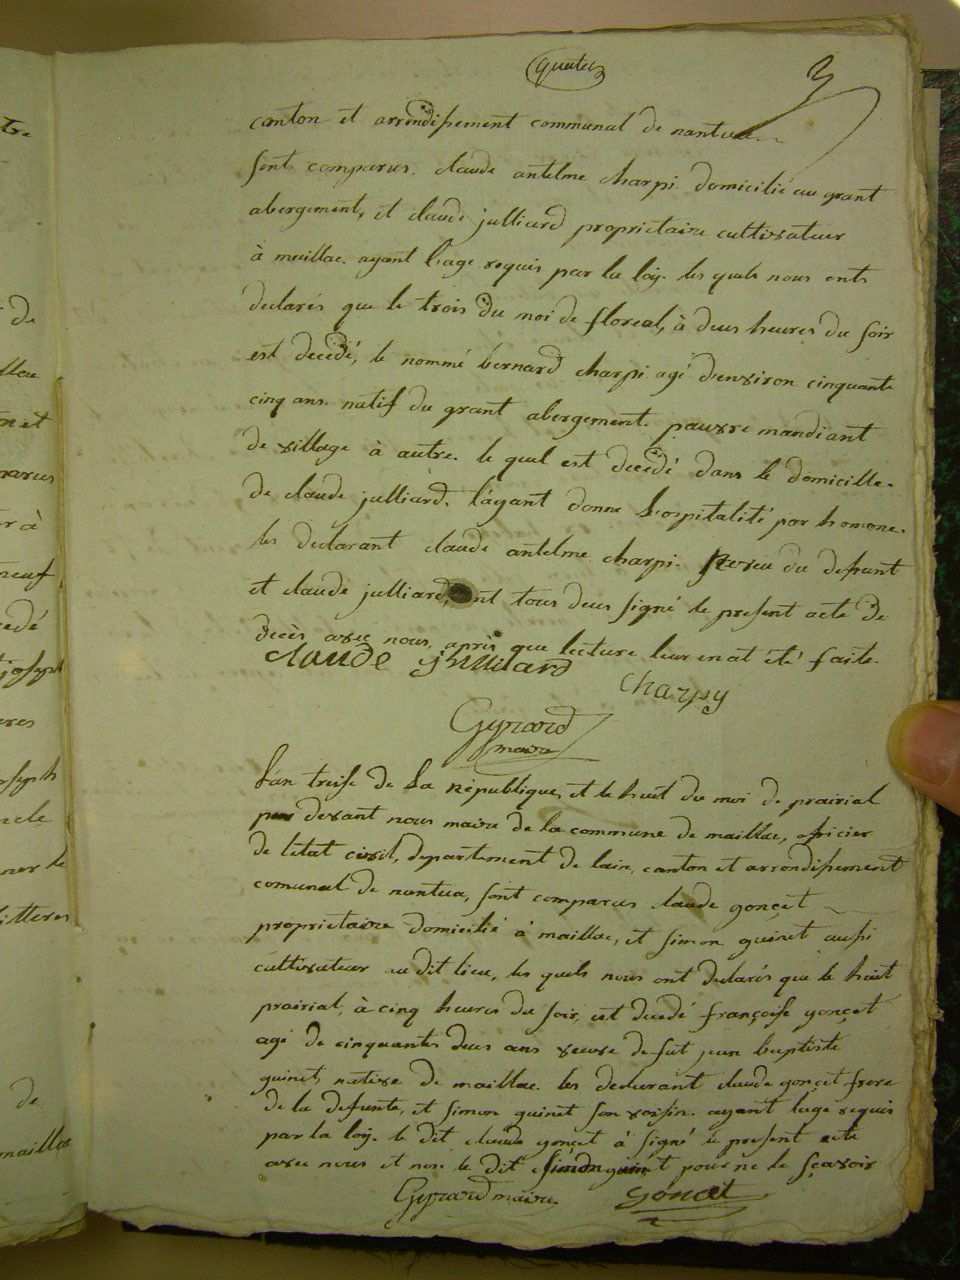 quatre
3
canton et arrondissement communal de nantua
sont comparus. claude antelme charpi domicilié au grant
abergement, et claude julliard proprietaire cultivateur
à maillac. ayant l'age requis par la loÿ. les quels nous onts
declarés que le trois du moi de floreal, à deus heures du soir
est decedé, le nommé bernard charpi agé d'environ cinquante
cinq ans. natif du grant abergement. pauvre mandiant
de village à autre. le quel est decedé dans le domicille.
de claude julliard. l'ayant donne l'ospitalité par homone.
les declarant claude antelme charpi. neveu du defunt
et claude julliard, ont tous deus signé le present acte de
decès avec nous, après que lecture leur en at été faite.
claude julliard
charpy
Gyrard
maire
l'an treise de la république, et le huit du moi de prairial
par devant nous maire de la commune de maillac, oficier
de letat civil, departement de lain, canton et arrondissement
comunal de nantua, sont comparus claude gonçet
proprietaire domicilié à maillac, et simon guinet aussi
cultivateur au dit lieu, les quels nous ont declarés que le huit
prairial, à cinq heures du soir, est decedé françoise gonçet
agé de cinquante deus ans veuve de fut jean baptiste
guinet, native de maillac. les declarant claude gonçet frere
de la defunte, et simon guinet son voisin. ayant l'age requis
par la loÿ. le dit claude gonçet à signé le present acte
avec nous et non le dit simon guinet pour ne le sçavoir
Gyrard maire. goncet